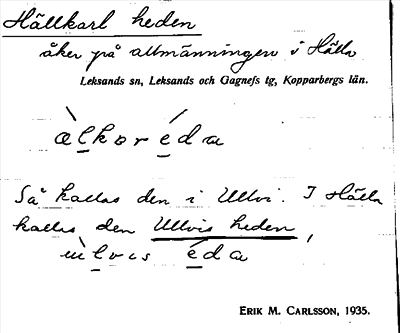 Hällkarl heden
åker på allmänningen i Hälla
Leksands sn, Leksands och Gagnefs tg, Kopparbergs län.
æ̀lkor éda
Så kallas den i Ullvi. I Hälla
kallas den Ullvis heden,
ùlvis éda
ERIK M. CARLSSON, 1935.